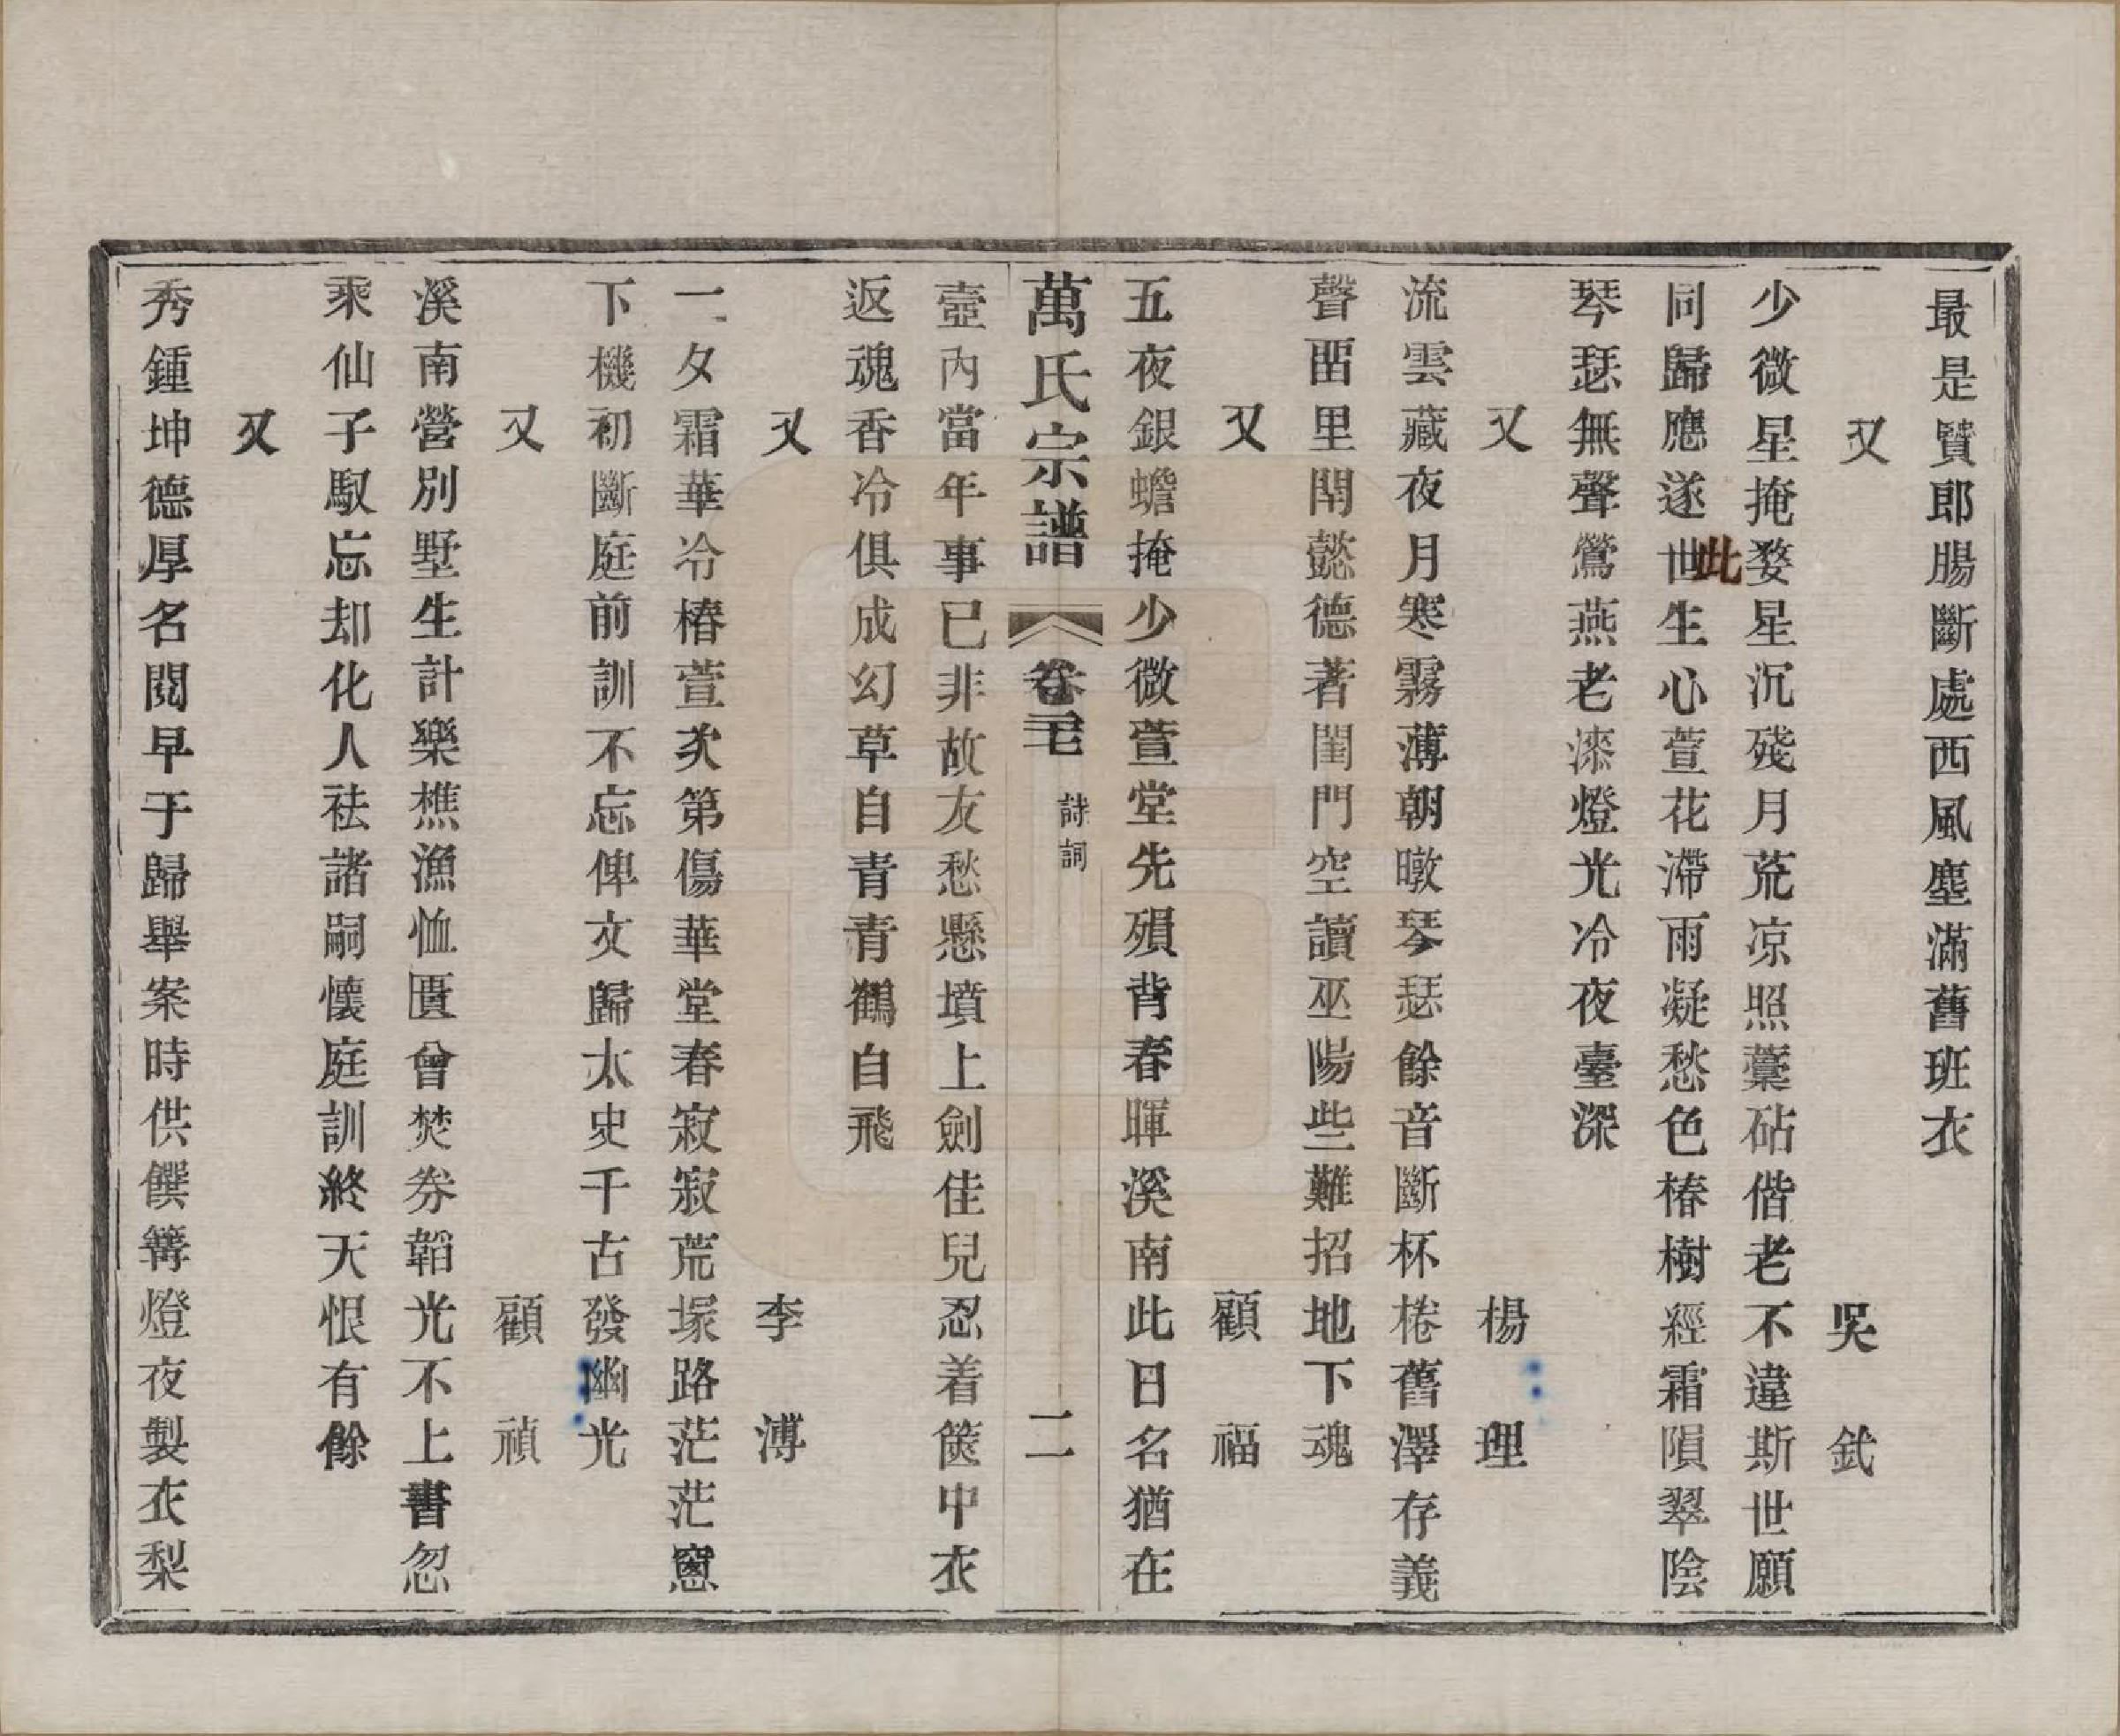 最是賢郎腸斷處西風塵滿舊班衣
又　吳鉽
少微星掩婺星沉殘月荒凉照藁砧偕老不違斯世願
同歸應遂世生心萱花滯雨凝愁色椿樹經霜隕翠陰
此
琴瑟無聲鶯燕老漆燈光冷夜臺深
又　楊理
流雲藏夜月寒霧薄朝暾琴瑟餘音斷杯棬舊澤存義
聲畱里閈懿德著閨門空讀巫陽些難招地下魂
又　顧福
五夜銀蟾掩少微萱堂先殞背春暉溪南此日名猶在
萬氏宗譜　卷三七　詩詞　二
壺內當年事已非故友愁懸墳上劍佳兒忍着篋中衣
返魂香冷俱成幻草自青青鶴自飛
又　李溥
一夕霜華冷椿萱次第傷華堂春寂寂荒塚路茫茫窻
下機初斷庭前訓不忘俾文歸太史千古發幽光
又　顧禎
溪南營別墅生計樂樵漁恤匱曾焚券韜光不上書忽
乘仙子馭忘却化人祛諸嗣懷庭訓終天恨有餘
又
秀鍾坤德厚名閥早于歸舉案時供饌篝燈夜製衣梨